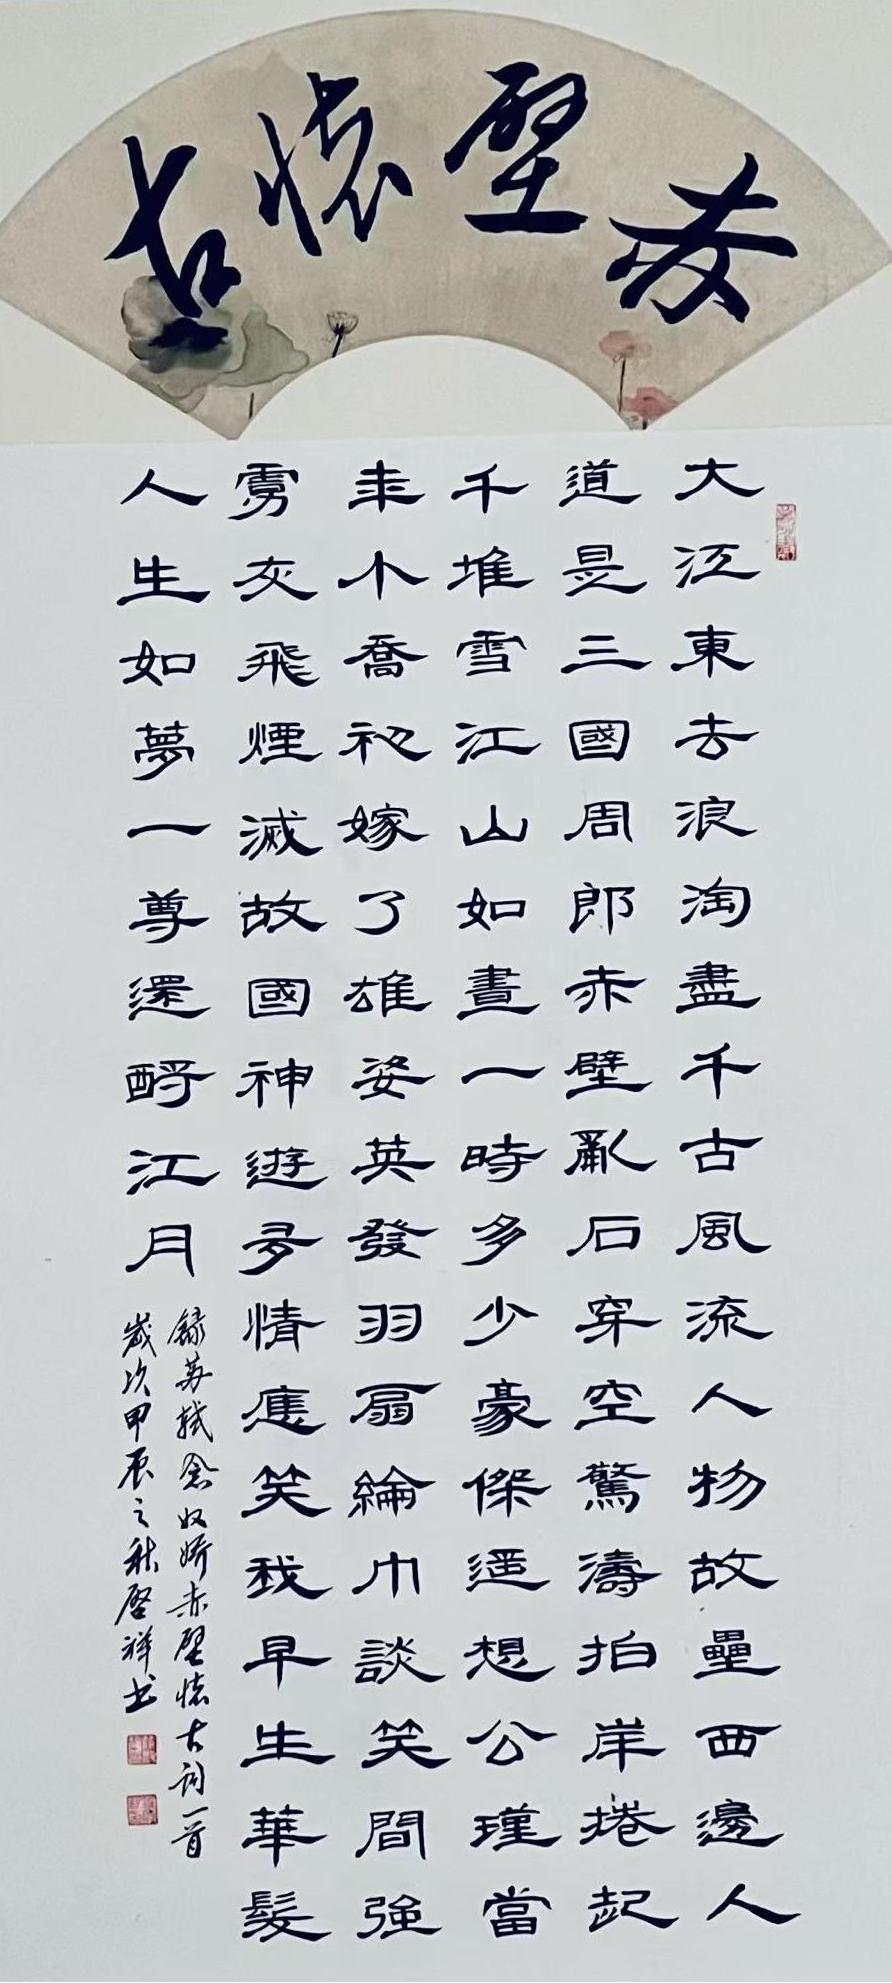 赤壁懷古
大江東去浪淘盡千古風流人物故壘西邊人
道是三國周郎赤壁亂石穿空驚濤拍岸捲起
千堆雪江山如畫一時多少豪傑遥想公瑾當
年小喬初嫁了雄姿英發羽扇綸巾談笑間強
虜灰飛煙滅故國神遊多情應笑我早生華髮
人生如夢一尊還酹江月
錄苏軾念奴娇赤壁懷古词一首
歲次甲辰之秋啓祥书